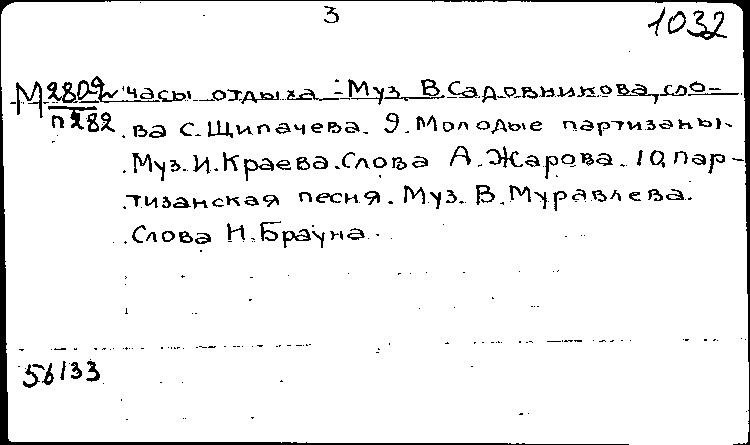 3
1032
М 2809 часы отдыха - Муз. В.Садовникова, сло-
п282 ва С.Щипачева. 9. Молодые партизаны.
Муз. И.Краева. Слова А.Жарова. 10. пар-
тизанская песня. Муз. В.Муравлева.
Слова Н.Брауна.
56133